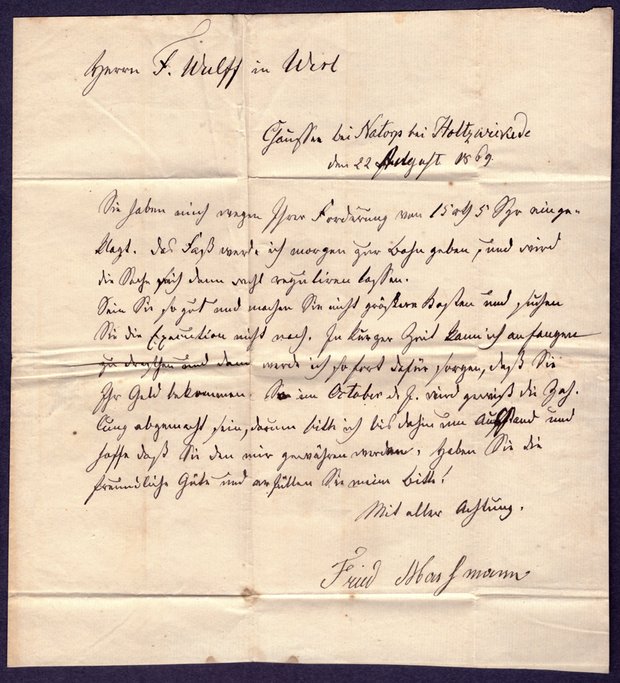 Herrn F. Wulff in Werl
Chaussee bei Natorp bei Holtzwickede
den 22 August 1869
Sie haben mich wegen Ihrer Forderung von 15 rth 5 Sgr einge-
klagt. Das Faß werde ich morgen zur Bahn geben, und wird
die Sache sich dann recht reguliren lassen.
Sein Sie so gut und machen Sie nicht größere Kosten und suchen
Sie die Execution nicht nach. In kurzer Zeit kann ich anfangen
zu dreschen und dann werde ich sofort dafür sorgen, daß Sie
Ihr Geld bekommen. im October d. J. wird gewiß die Zah-
lung abgemacht sein, darum bitte ich bis dahin um Ausstand und
hoffe daß Sie den mir gewähren werden. Haben Sie die
freundliche Güte und erfüllen Sie meine Bitte!
Mit aller Achtung.
Fried